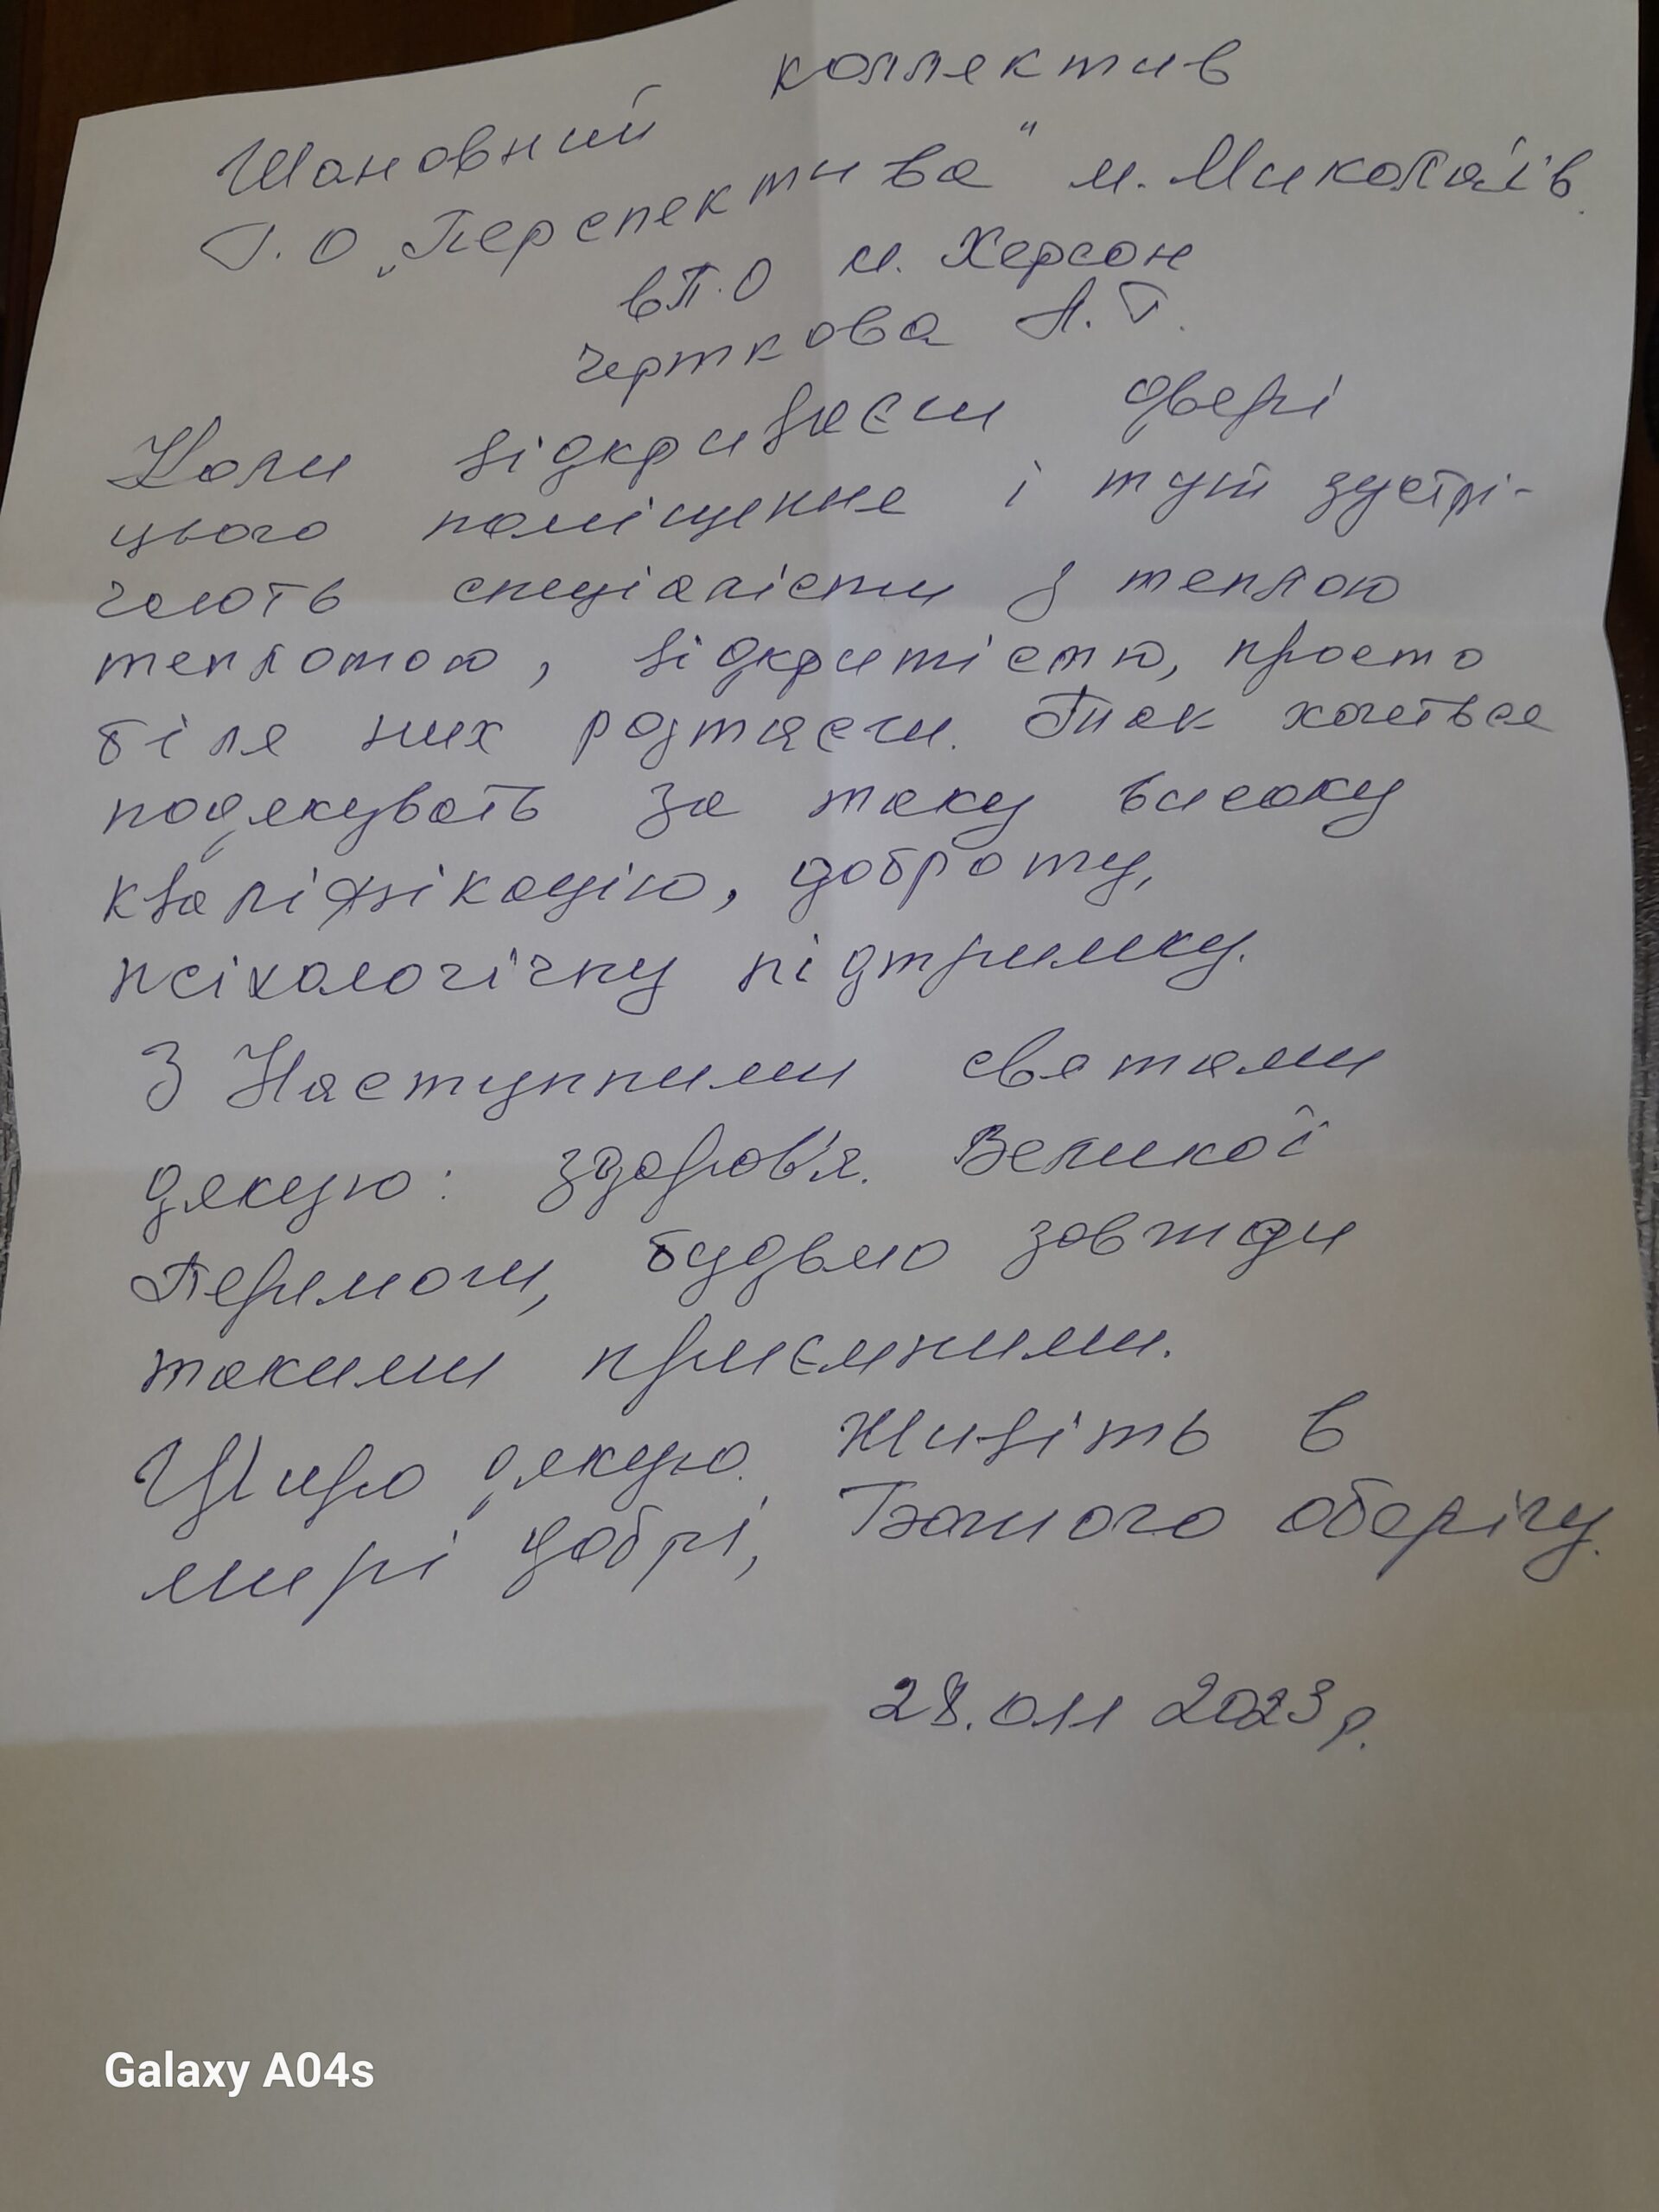 Шановний коллектив
Г.О „Перспектива" м. Миколаїв.
вП.О м. Херсон
Черткова А. Г.
Коли відкриваєш двері
цього поміщення і тут зустрі-
чають спеціалісти з теплою
теплотою, відкритістю, просто
біля них розтаєш. Так хочеться
подякувать за таку високу
кваліфікацію, доброту,
псіхологічну підтримку.
З Наступними святами
дякую: здоров'я. Великої
Перемоги, будьмо завжди
такими приємними.
Щиро дякую. Живіть в
мирі добрі, Божого оберігу.
28.011 2023р.
Galaxy A04s